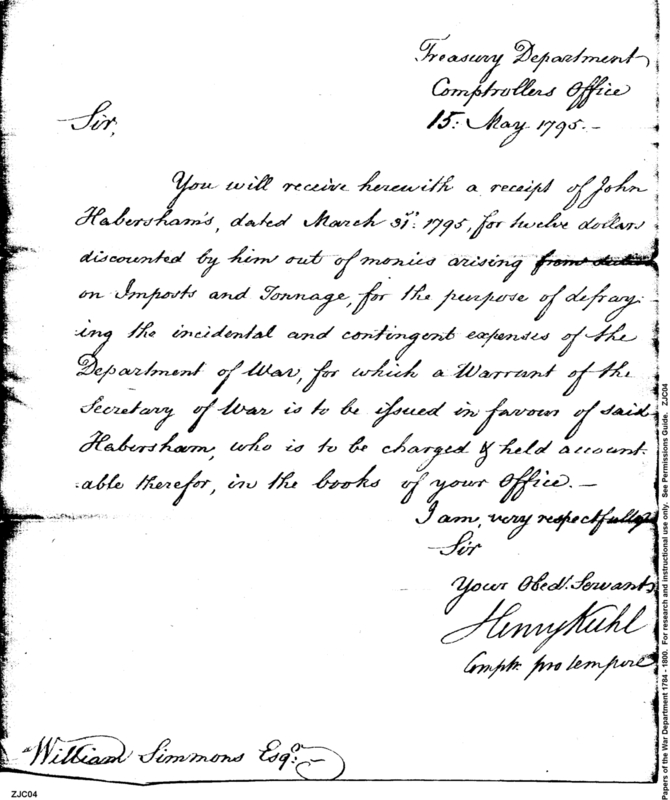 Treasury Department
Comptrollers Office
Sir,
15: May 1795.-
You will receive herewith a receipt of John
Habersham's, dated March 31st: 1795, for twelve dollars
discounted by him out of monies arising from duties
on Imposts and Tonnage, for the purpose of defray-
ing the incidental and contingent expenses of the
Department of War, for which a Warrant of the
Secretary of War is to be issued in favour of said
Habersham, who is to be charged & held account-
able therefor, in the books of your Office.-
I am, very respectfully
Sir
Your Obed. Servant
Henry Kuhl
Comptr. pro tempore
William Simmons Esqr.
ZJC04
Papers of the War Department 1784 - 1800. For research and instructional use only. See Permissions Guide. ZJC04